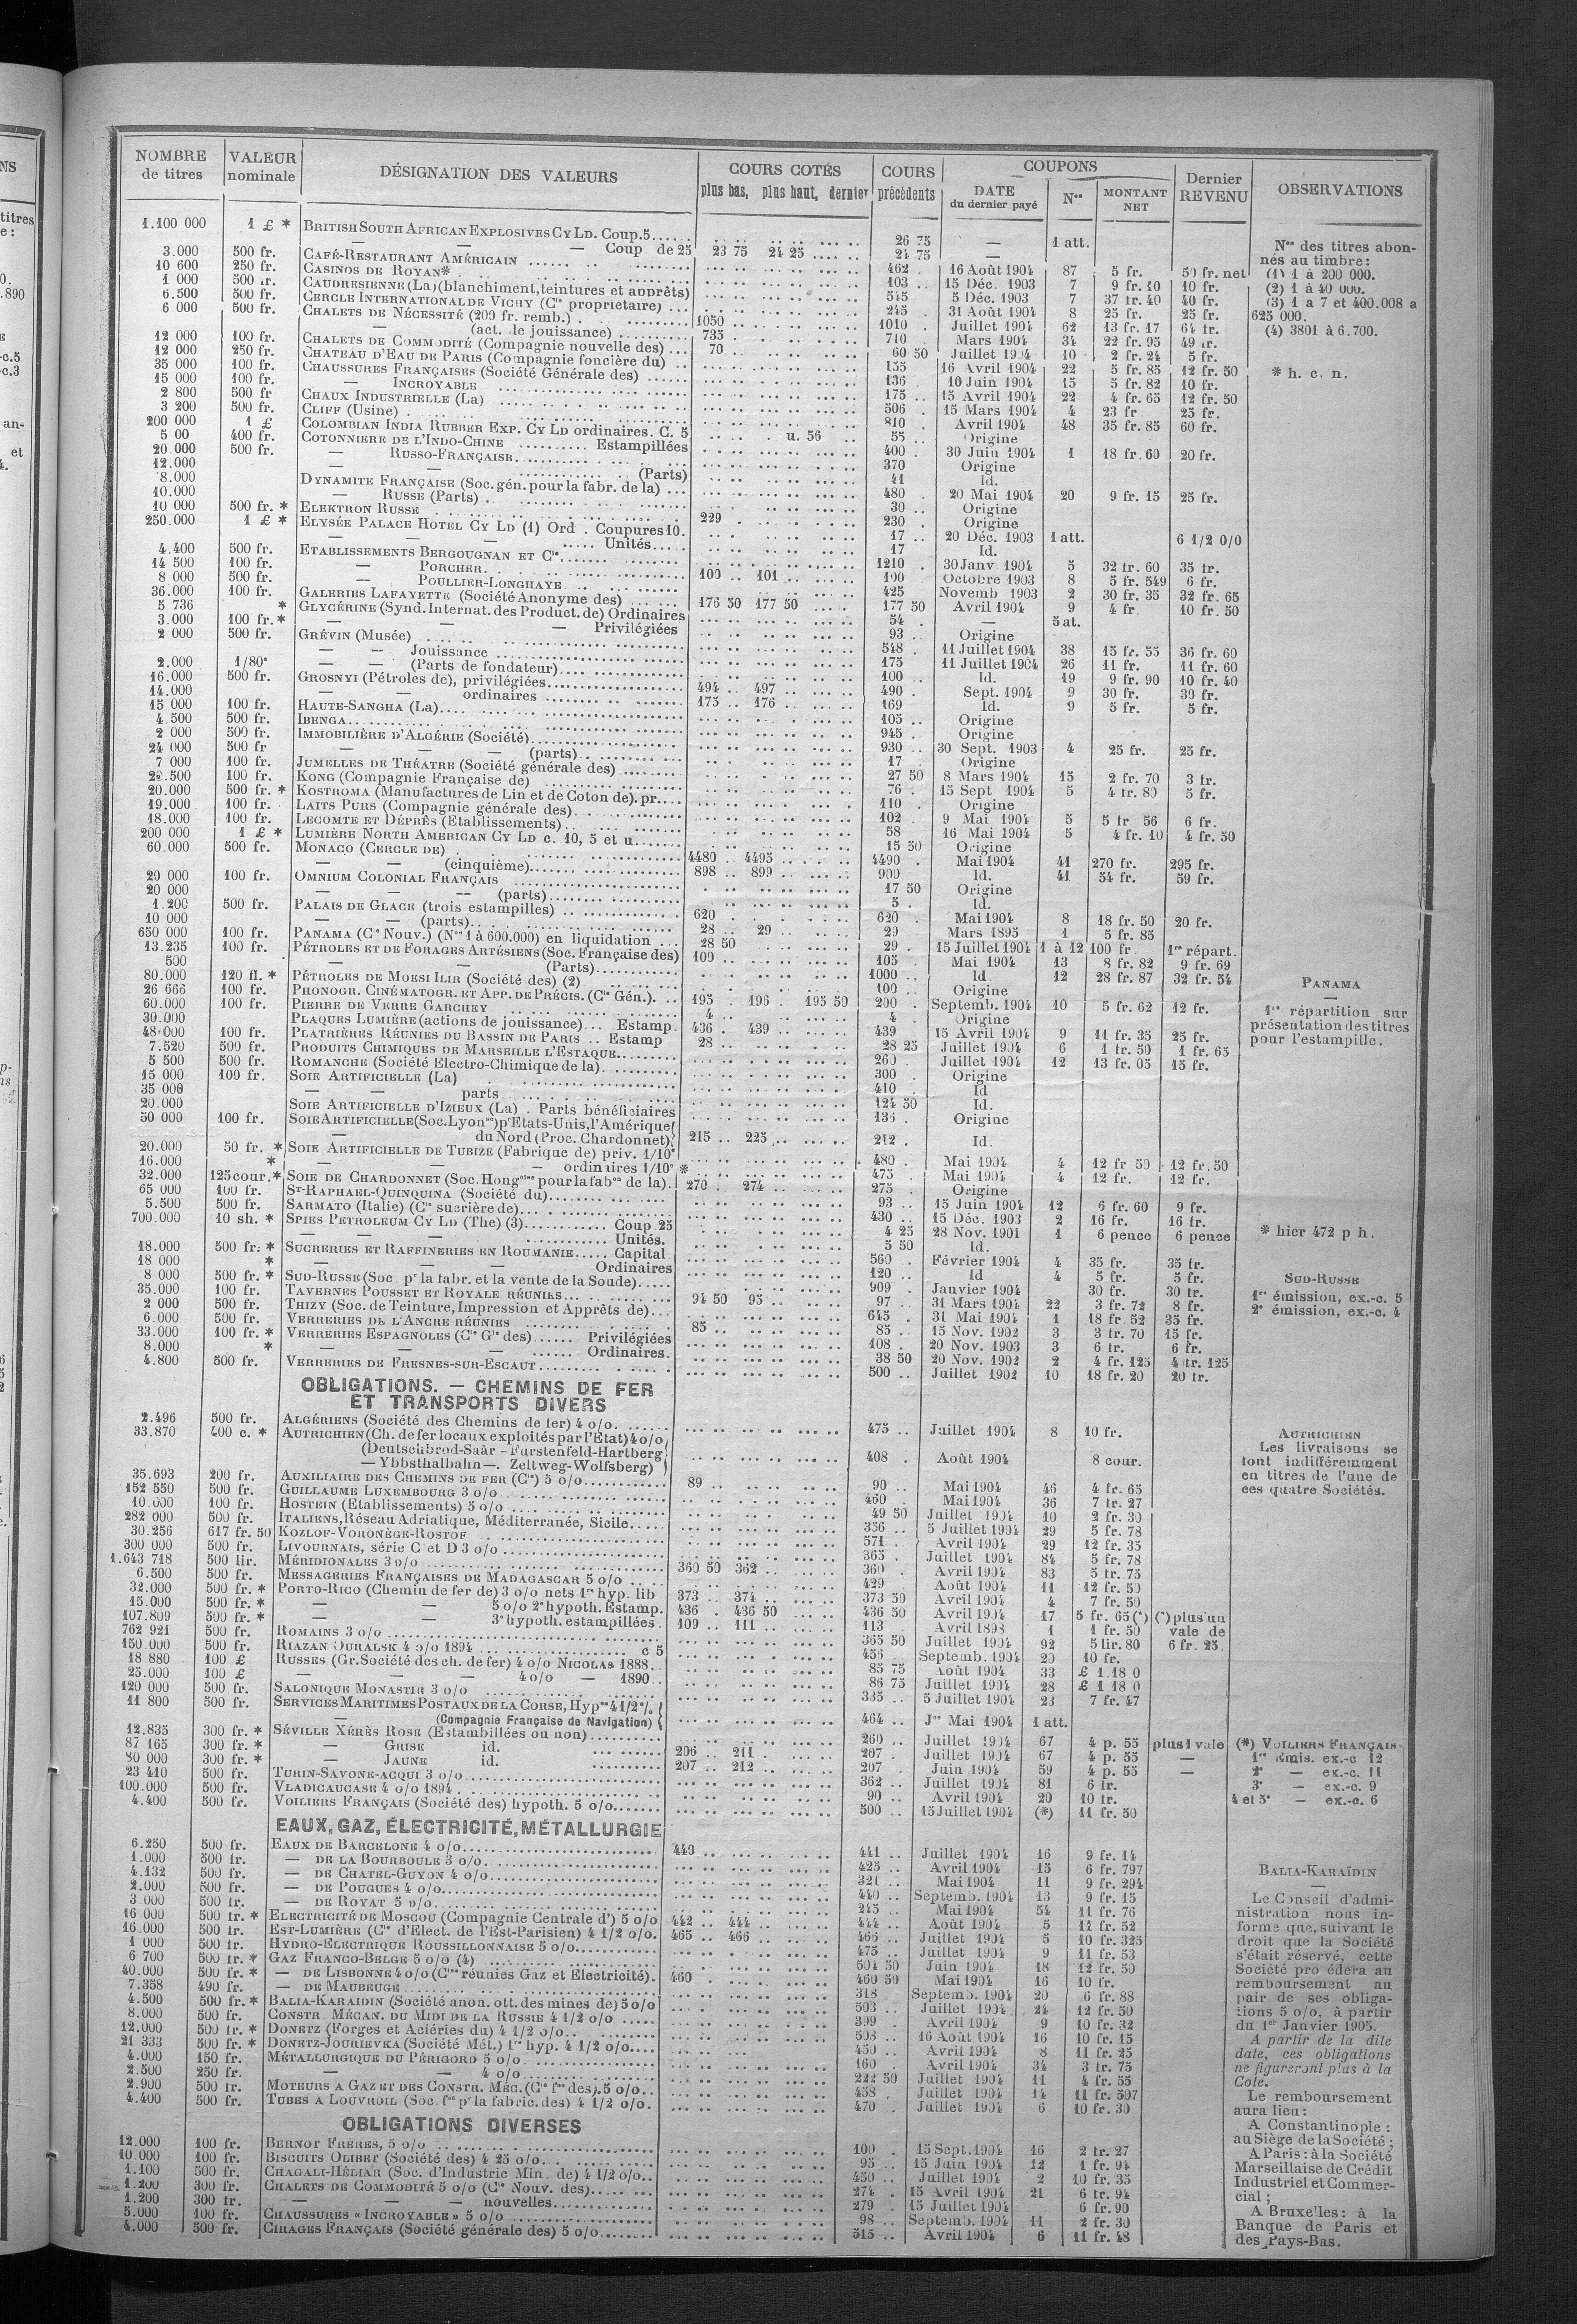 NOMBRE de titres | VALEUR nominale | DÉSIGNATION DES VALEURS | COURS COTÉS plus bas, plus haut, dernier | COURS précédents | COUPONS DATE du dernier payé | Nos | MONTANT NET | Dernier REVENU | OBSERVATIONS
1.100 000 1 £ * BRITISH SOUTH AFRICAN EXPLOSIVES CY LD. Coup. 5 26 75 — 1 att.
— — — Coup de 25 23 75 24 25 24 75 —
3.000 500 fr. CAFÉ-RESTAURANT AMÉRICAIN 462 16 Août 1904 87 5 fr. 50 fr. net
10 600 250 fr. CASINOS DE ROYAN* 103 15 Déc. 1903 7 9 fr. 10 10 fr.
1 000 500 fr. CAUDRESIENNE (La) (blanchiment, teintures et apprêts) 545 5 Déc. 1903 7 37 fr. 40 40 fr.
6.500 500 fr. CERCLE INTERNATIONAL DE VICHY (Cie propriétaire) 245 31 Août 1904 8 25 fr. 25 fr.
6 000 500 fr. CHALETS DE NÉCESSITÉ (200 fr. remb.) 1050 1010 Juillet 1904 62 13 fr. 17 64 fr.
— (act. de jouissance) 735 710 Mars 1904 34 22 fr. 95 49 fr.
12 000 100 fr. CHALETS DE COMMODITÉ (Compagnie nouvelle des) 70 60 50 Juillet 1904 10 2 fr. 24 5 fr.
12 000 250 fr. CHATEAU D'EAU DE PARIS (Compagnie foncière du) 155 16 Avril 1904 22 5 fr. 85 12 fr. 50
35 000 100 fr. CHAUSSURES FRANÇAISES (Société Générale des) 136 10 Juin 1904 15 5 fr. 82 10 fr.
15 000 100 fr. — INCROYABLE 175 15 Avril 1904 22 4 fr. 65 12 fr. 50
2 800 500 fr CHAUX INDUSTRIELLE (La) 506 15 Mars 1904 4 23 fr 25 fr.
3 200 500 fr. CLIFF (Usine) 810 Avril 1904 48 35 fr. 85 60 fr.
200 000 1 £ COLOMBIAN INDIA RUBBER EXP. CY LD ordinaires. C. 5 u. 56 55 Origine
5 00 400 fr. COTONNIERE DE L'INDO-CHINE Estampillées 400 30 Juin 1904 1 18 fr. 60 20 fr.
20.000 500 fr. — RUSSO-FRANÇAISE 370 Origine
12.000 — — (Parts) 41 Id.
8.000 DYNAMITE FRANÇAISE (Soc. gén. pour la fabr. de la) 480 20 Mai 1904 20 9 fr. 15 25 fr.
10.000 — RUSSE (Parts) 30 Origine
10 000 500 fr. * ELEKTRON RUSSE 229 230 Origine
250.000 1 £ * ELYSÉE PALACE HOTEL CY LD (1) Ord. Coupures 10. 17 20 Déc. 1903 1 att. 6 1/2 0/0
— — — Unités 17 Id.
4.400 500 fr. ETABLISSEMENTS BERGOUGNAN ET Cie 1210 30 Janv 1904 5 32 fr. 60 35 fr.
14 500 100 fr. — PORCHER 100 101 100 Octobre 1903 8 5 fr. 549 6 fr.
8 000 500 fr. — POULLIER-LONGHAYE 425 Novemb 1903 2 30 fr. 35 32 fr. 65
36.000 100 fr. GALERIES LAFAYETTE (Société Anonyme des) 176 50 177 50 177 50 Avril 1904 9 4 fr 10 fr. 50
5 736 * GLYCÉRINE (Synd. Internat. des Product. de) Ordinaires 54 — 5 at.
3.000 100 fr. * — — — Privilégiées 93 Origine
2 000 500 fr. GRÉVIN (Musée) 548 11 Juillet 1904 38 15 fr. 55 36 fr. 60
— — Jouissance 175 11 Juillet 1904 26 11 fr. 11 fr. 60
2.000 1/80e — — (Parts de fondateur) 100 Id. 19 9 fr. 90 10 fr. 40
16.000 500 fr. GROSNYI (Pétroles de), privilégiées 494 497 490 Sept. 1904 9 30 fr. 30 fr.
14.000 — — ordinaires 175 176 169 Id. 9 5 fr. 5 fr.
15 000 100 fr. HAUTE-SANGHA (La) 105 Origine
4.500 500 fr. IBENGA 945 Origine
2 000 500 fr. IMMOBILIÈRE D'ALGÉRIE (Société) 930 30 Sept. 1903 4 25 fr. 25 fr.
24 000 500 fr — — — (parts) 17 Origine
7 000 100 fr. JUMELLES DE THÉATRE (Société générale des) 27 50 8 Mars 1904 15 2 fr. 70 3 fr.
28.500 100 fr. KONG (Compagnie Française de) 76 15 Sept 1904 5 4 fr. 80 5 fr.
20.000 500 fr. * KOSTROMA (Manufactures de Lin et de Coton de). pr. 110 Origine
19.000 100 fr. LAITS PURS (Compagnie générale des) 102 9 Mai 1904 5 5 fr 56 6 fr.
18.000 100 fr. LECOMTE ET DÉPRÈS (Etablissements) 58 16 Mai 1904 5 4 fr. 10 4 fr. 50
200 000 1 £ * LUMIÈRE NORTH AMERICAN CY LD c. 10, 5 et u. 15 50 Origine
60.000 500 fr. MONACO (CERCLE DE) 4480 4495 4490 Mai 1904 41 270 fr. 295 fr.
— — (cinquième) 898 899 900 Id. 41 54 fr. 59 fr.
20 000 100 fr. OMNIUM COLONIAL FRANÇAIS 17 50 Origine
20 000 — — — (parts) 5 Id.
1.200 500 fr. PALAIS DE GLACE (trois estampilles) 620 620 Mai 1904 8 18 fr. 50 20 fr.
10 000 — — (parts) 28 29 29 Mars 1895 1 5 fr. 85
650 000 100 fr. PANAMA (Cie Nouv.) (Nos 1 à 600.000) en liquidation 28 50 29 15 Juillet 1904 1 à 12 100 fr. 1re répart.
13.235 100 fr. PÉTROLES ET DE FORAGES ARTÉSIENS (Soc. Française des) 100 105 Mai 1904 13 8 fr. 82 9 fr. 69
500 — — (Parts) 1000 Id. 12 28 fr. 87 32 fr. 54
80.000 120 fl. * PÉTROLES DE MOESI ILIR (Société des) (2) 100 Origine
26 666 100 fr. PHONOGR. CINÉMATOGR. ET APP. DE PRÉCIS. (Cie Gén.). 195 196 195 50 200 Septemb. 1904 10 5 fr. 62 12 fr.
60.000 100 fr. PIERRE DE VERRE GARCHEY 4 4 Origine
30.000 PLAQUES LUMIÈRE (actions de jouissance) Estamp. 436 439 439 15 Avril 1904 9 11 fr. 35 25 fr.
48.000 100 fr. PLATRIÈRES RÉUNIES DU BASSIN DE PARIS Estamp 28 28 25 Juillet 1904 6 1 fr. 50 1 fr. 65
7.520 500 fr. PRODUITS CHIMIQUES DE MARSEILLE L'ESTAQUE 260 Juillet 1904 12 13 fr. 05 15 fr.
5 500 500 fr. ROMANCHE (Société Electro-Chimique de la) 300 Origine
15 000 100 fr. SOIE ARTIFICIELLE (La) 410 Id
35 000 — parts 124 50 Id.
20.000 SOIE ARTIFICIELLE D'IZIEUX (La). Parts bénéficiaires Origine
50 000 100 fr. SOIE ARTIFICIELLE (Soc. Lyonnse) pr Etats-Unis, l'Amérique
— du Nord (Proc. Chardonnet) 215 225 212 Id.
20.000 50 fr. * SOIE ARTIFICIELLE DE TUBIZE (Fabrique de) priv. 1/10e 480 Mai 1904 4 12 fr 50 12 fr. 50
16.000 * — — — ordinaires 1/10e * 475 Mai 1904 4 12 fr. 12 fr.
32.000 125 cour. * SOIE DE CHARDONNET (Soc. Hongoise pour la fabon de la). 270 274 275 Origine
65 000 100 fr. ST-RAPHAEL-QUINQUINA (Société du) 93 15 Juin 1904 12 6 fr. 60 9 fr.
5.500 500 fr. SARMATO (Italie) (Cie sucrière de) 430 15 Déc. 1903 2 16 fr. 16 fr.
700.000 10 sh. * SPIES PETROLEUM CY LD (The) (3) Coup 25 4 25 28 Nov. 1901 1 6 pence 6 pence
— — — Unités. 5 50 Id.
18.000 500 fr. * SUCRERIES ET RAFFINERIES EN ROUMANIE Capital 560 Février 1904 4 35 fr. 35 fr.
18 000 * — — — Ordinaires 120 Id 4 5 fr. 5 fr.
8 000 500 fr. * SUD-RUSSE (Soc. pr la fabr. et la vente de la Soude) 909 Janvier 1904 30 fr. 30 fr.
35.000 100 fr. TAVERNES POUSSET ET ROYALE RÉUNIES 94 50 95 97 31 Mars 1904 22 3 fr. 72 8 fr.
2 000 500 fr. THIZY (Soc. de Teinture, Impression et Apprêts de) 645 31 Mai 1904 1 18 fr 52 35 fr.
6.000 500 fr. VERRERIES DE L'ANCRE RÉUNIES 85 85 15 Nov. 1902 3 3 fr. 70 15 fr.
33.000 100 fr. * VERRERIES ESPAGNOLES (Cie Gle des) Privilégiées 108 20 Nov. 1903 3 6 fr. 6 fr.
8.000 * — — Ordinaires. 38 50 20 Nov. 1902 2 4 fr. 125 4 fr. 125
4.800 500 fr. VERRERIES DE FRESNES-SUR-ESCAUT 500 Juillet 1902 10 18 fr. 20 20 fr.
OBLIGATIONS. — CHEMINS DE FER
ET TRANSPORTS DIVERS
2.496 500 fr. ALGÉRIENS (Société des Chemins de fer) 4 o/o 475 Juillet 1904 8 10 fr.
33.870 400 c. * AUTRICHIEN (Ch. de fer locaux exploités par l'État) 4 o/o
(Deutschbrod-Saâr - Furstenfeld-Hartberg 408 Août 1904 8 cour.
— Ybbsthalbahn —. Zeltweg-Wolfsberg)
35.693 200 fr. AUXILIAIRE DES CHEMINS DE FER (Cie) 5 o/o 89 90 Mai 1904 46 4 fr. 65
152 550 500 fr. GUILLAUME LUXEMBOURG 3 o/o 460 Mai 1904 36 7 fr. 27
10.000 100 fr. HOSTEIN (Etablissements) 5 o/o 49 50 Juillet 1904 10 2 fr. 30
282 000 500 fr. ITALIENS, Réseau Adriatique, Méditerranée, Sicile 356 5 Juillet 1904 29 5 fr. 78
30.256 617 fr. 50 KOZLOF-VORONÈGE-ROSTOF 571 Avril 1904 29 12 fr. 35
300 000 500 fr. LIVOURNAIS, série C et D 3 o/o 365 Juillet 1904 84 5 fr. 78
1.643 718 500 lir. MÉRIDIONALES 3 o/o 360 50 362 360 Avril 1904 83 5 fr. 75
6.500 500 fr. MESSAGERIES FRANÇAISES DE MADAGASCAR 5 o/o 429 Août 1904 11 12 fr. 50
32.000 500 fr. * PORTO-RICO (Chemin de fer de) 3 o/o nets 1re hyp. lib 373 374 373 50 Avril 1904 4 7 fr. 50
15.000 500 fr. * — — 5 o/o 2e hypoth. Estamp. 436 436 50 436 50 Avril 1904 17 5 fr. 65 (*) (*) plus un
107.809 500 fr. * — — 3e hypoth. estampillées 109 111 113 Avril 1898 1 1 fr. 50 vale de
762 921 500 fr. ROMAINS 3 o/o 365 50 Juillet 1904 92 5 lir. 80 6 fr. 25.
150.000 500 fr. RIAZAN OURALSK 4 o/o 1894 c 5 456 Septemb. 1904 20 10 fr.
18 880 100 £ RUSSES (Gr. Société des ch. de fer) 4 o/o NICOLAS 1888 85 75 Août 1904 33 £ 1.18 0
25.000 100 £ — — — 4 o/o — 1890 86 75 Juillet 1904 28 £ 1 18 0
120 000 500 fr. SALONIQUE MONASTIR 3 o/o 335 5 Juillet 1904 23 7 fr. 47
11 800 500 fr. SERVICES MARITIMES POSTAUX DE LA CORSE, Hypre 4 1/2 %
— (Compagnie Française de Navigation) 464 Jce Mai 1904 1 att.
12.835 300 fr. * SÉVILLE XÉRÈS ROSE (Estambillées ou non) 260 Juillet 1904 67 4 p. 55 plus 1 vale
87 165 300 fr. * — GRISE id. 206 211 207 Juillet 1904 67 4 p. 55 —
80 000 300 fr. * — JAUNE id. 207 212 207 Juin 1904 59 4 p. 55 —
23 410 500 fr. TURIN-SAVONE-ACQUI 3 o/o 362 Juillet 1904 81 6 fr.
100.000 500 fr. VLADICAUCASE 4 o/o 1894 90 Avril 1904 20 10 fr.
4.400 500 fr. VOILIERS FRANÇAIS (Société des) hypoth. 5 o/o 500 15 Juillet 1904 (*) 11 fr. 50
EAUX, GAZ, ÉLECTRICITÉ, MÉTALLURGIE
6.250 500 fr. EAUX DE BARCELONE 4 o/o 440 441 Juillet 1904 16 9 fr. 14
1.000 500 fr. — DE LA BOURBOULE 3 o/o 425 Avril 1904 15 6 fr. 797
4.132 500 fr. — DE CHATEL-GUYON 4 o/o 321 Mai 1904 11 9 fr. 294
2.000 500 fr. — DE POUGUES 4 o/o 440 Septemb. 1904 13 9 fr. 15
3.000 500 fr. — DE ROYAT 5 o/o 245 Mai 1904 54 11 fr. 76
16 000 500 fr. * ELECTRICITÉ DE MOSCOU (Compagnie Centrale d') 5 o/o 442 444 444 Août 1904 5 12 fr. 52
16.000 500 fr. EST-LUMIÈRE (Cie d'Elect. de l'Est-Parisien) 4 1/2 o/o. 465 466 466 Juillet 1904 5 10 fr. 325
1 000 500 fr. HYDRO-ELECTRIQUE ROUSSILLONNAISE 5 o/o 475 Juillet 1904 9 11 fr. 53
6 700 500 fr. * GAZ FRANCO-BELGE 5 o/o (4) 501 50 Juin 1904 18 12 fr. 50
40.000 500 fr. * — DE LISBONNE 4 o/o (Cies réunies Gaz et Electricité). 460 460 50 Mai 1904 16 10 fr.
7.358 490 fr. — DE MAUBEUGE 318 Septemb. 1904 20 6 fr. 88
4.500 500 fr. * BALIA-KARAIDIN (Société anon. ott. des mines de) 5 o/o 503 Juillet 1904 24 12 fr. 50
8.000 500 fr. CONSTR. MÉCAN. DU MIDI DE LA RUSSIE 4 1/2 o/o 399 Avril 1904 9 10 fr. 32
12.000 500 fr. * DONETZ (Forges et Aciéries du) 4 1/2 o/o 508 16 Août 1904 16 10 fr. 15
21 333 500 fr. * DONETZ-JOURIEVKA (Société Mét.) 1re hyp. 4 1/2 o/o 450 Avril 1904 8 11 fr. 25
4.000 150 fr. MÉTALLURGIQUE DU PÉRIGORD 5 o/o 160 Avril 1904 34 3 fr. 75
2.500 250 fr. — — 4 o/o 222 50 Juillet 1904 11 4 fr. 55
2.900 500 fr. MOTEURS A GAZ ET DES CONSTR. MÉC. (Cie fse des). 5 o/o 458 Juillet 1904 14 11 fr. 507
4.400 500 fr. TUBES A LOUVROIL (Soc. fse pr la fabric. des) 4 1/2 o/o. 470 Juillet 1904 6 10 fr. 30
OBLIGATIONS DIVERSES
12.000 100 fr. BERNOT FRÈRES, 5 o/o 100 15 Sept. 1904 16 2 fr. 27
10.000 100 fr. BISCUITS OLIBET (Société des) 4 25 o/o 95 15 Juin 1904 12 1 fr. 94
1.100 500 fr. CHAGALI-HÉLIAR (Soc. d'Industrie Min. de) 4 1/2 o/o 450 Juillet 1904 2 10 fr. 35
1.200 300 fr. CHALETS DE COMMODITÉ 5 o/o (Cie Nouv. des) 274 15 Avril 1904 21 6 fr. 94
1.200 300 fr. — — — nouvelles 279 15 Juillet 1904 6 fr. 90
5.000 100 fr. CHAUSSURES « INCROYABLE » 5 o/o 98 Septemb. 1904 11 2 fr. 30
4.000 500 fr. CIRAGES FRANÇAIS (Société générale des) 5 o/o 515 Avril 1904 6 11 fr. 48
Nos des titres abonnés au timbre:
(1) 1 à 200 000.
(2) 1 à 40 000.
(3) 1 a 7 et 400.008 a
625 000.
(4) 3801 à 6.700.
* h. c. n.
PANAMA
1re répartition sur
présentation des titres
pour l'estampille.
* hier 472 p h.
SUD-RUSSE
1re émission, ex.-c. 5
2e émission, ex.-c. 4
AUTRICHIEN
Les livraisons se
font indifféremment
en titres de l'une de
ces quatre Sociétés.
(*) VOILIERS FRANÇAIS
1re Émis. ex.-c 12
2e — ex.-c. 11
3e — ex.-c. 9
4 et 5e — ex.-c. 6
BALIA-KARAÏDIN
Le Conseil d'admi-
nistration nous in-
forme que, suivant le
droit que la Société
s'était réservé, cette
Société procédera au
remboursement au
pair de ses obliga-
tions 5 o/o, à partir
du 1er Janvier 1905.
A partir de la dite
date, ces obligations
ne figureront plus à la
Cote.
Le remboursement
aura lieu:
A Constantinople :
au Siège de la Société ;
A Paris : à la Société
Marseillaise de Crédit
Industriel et Commer-
cial ;
A Bruxelles : à la
Banque de Paris et
des Pays-Bas.